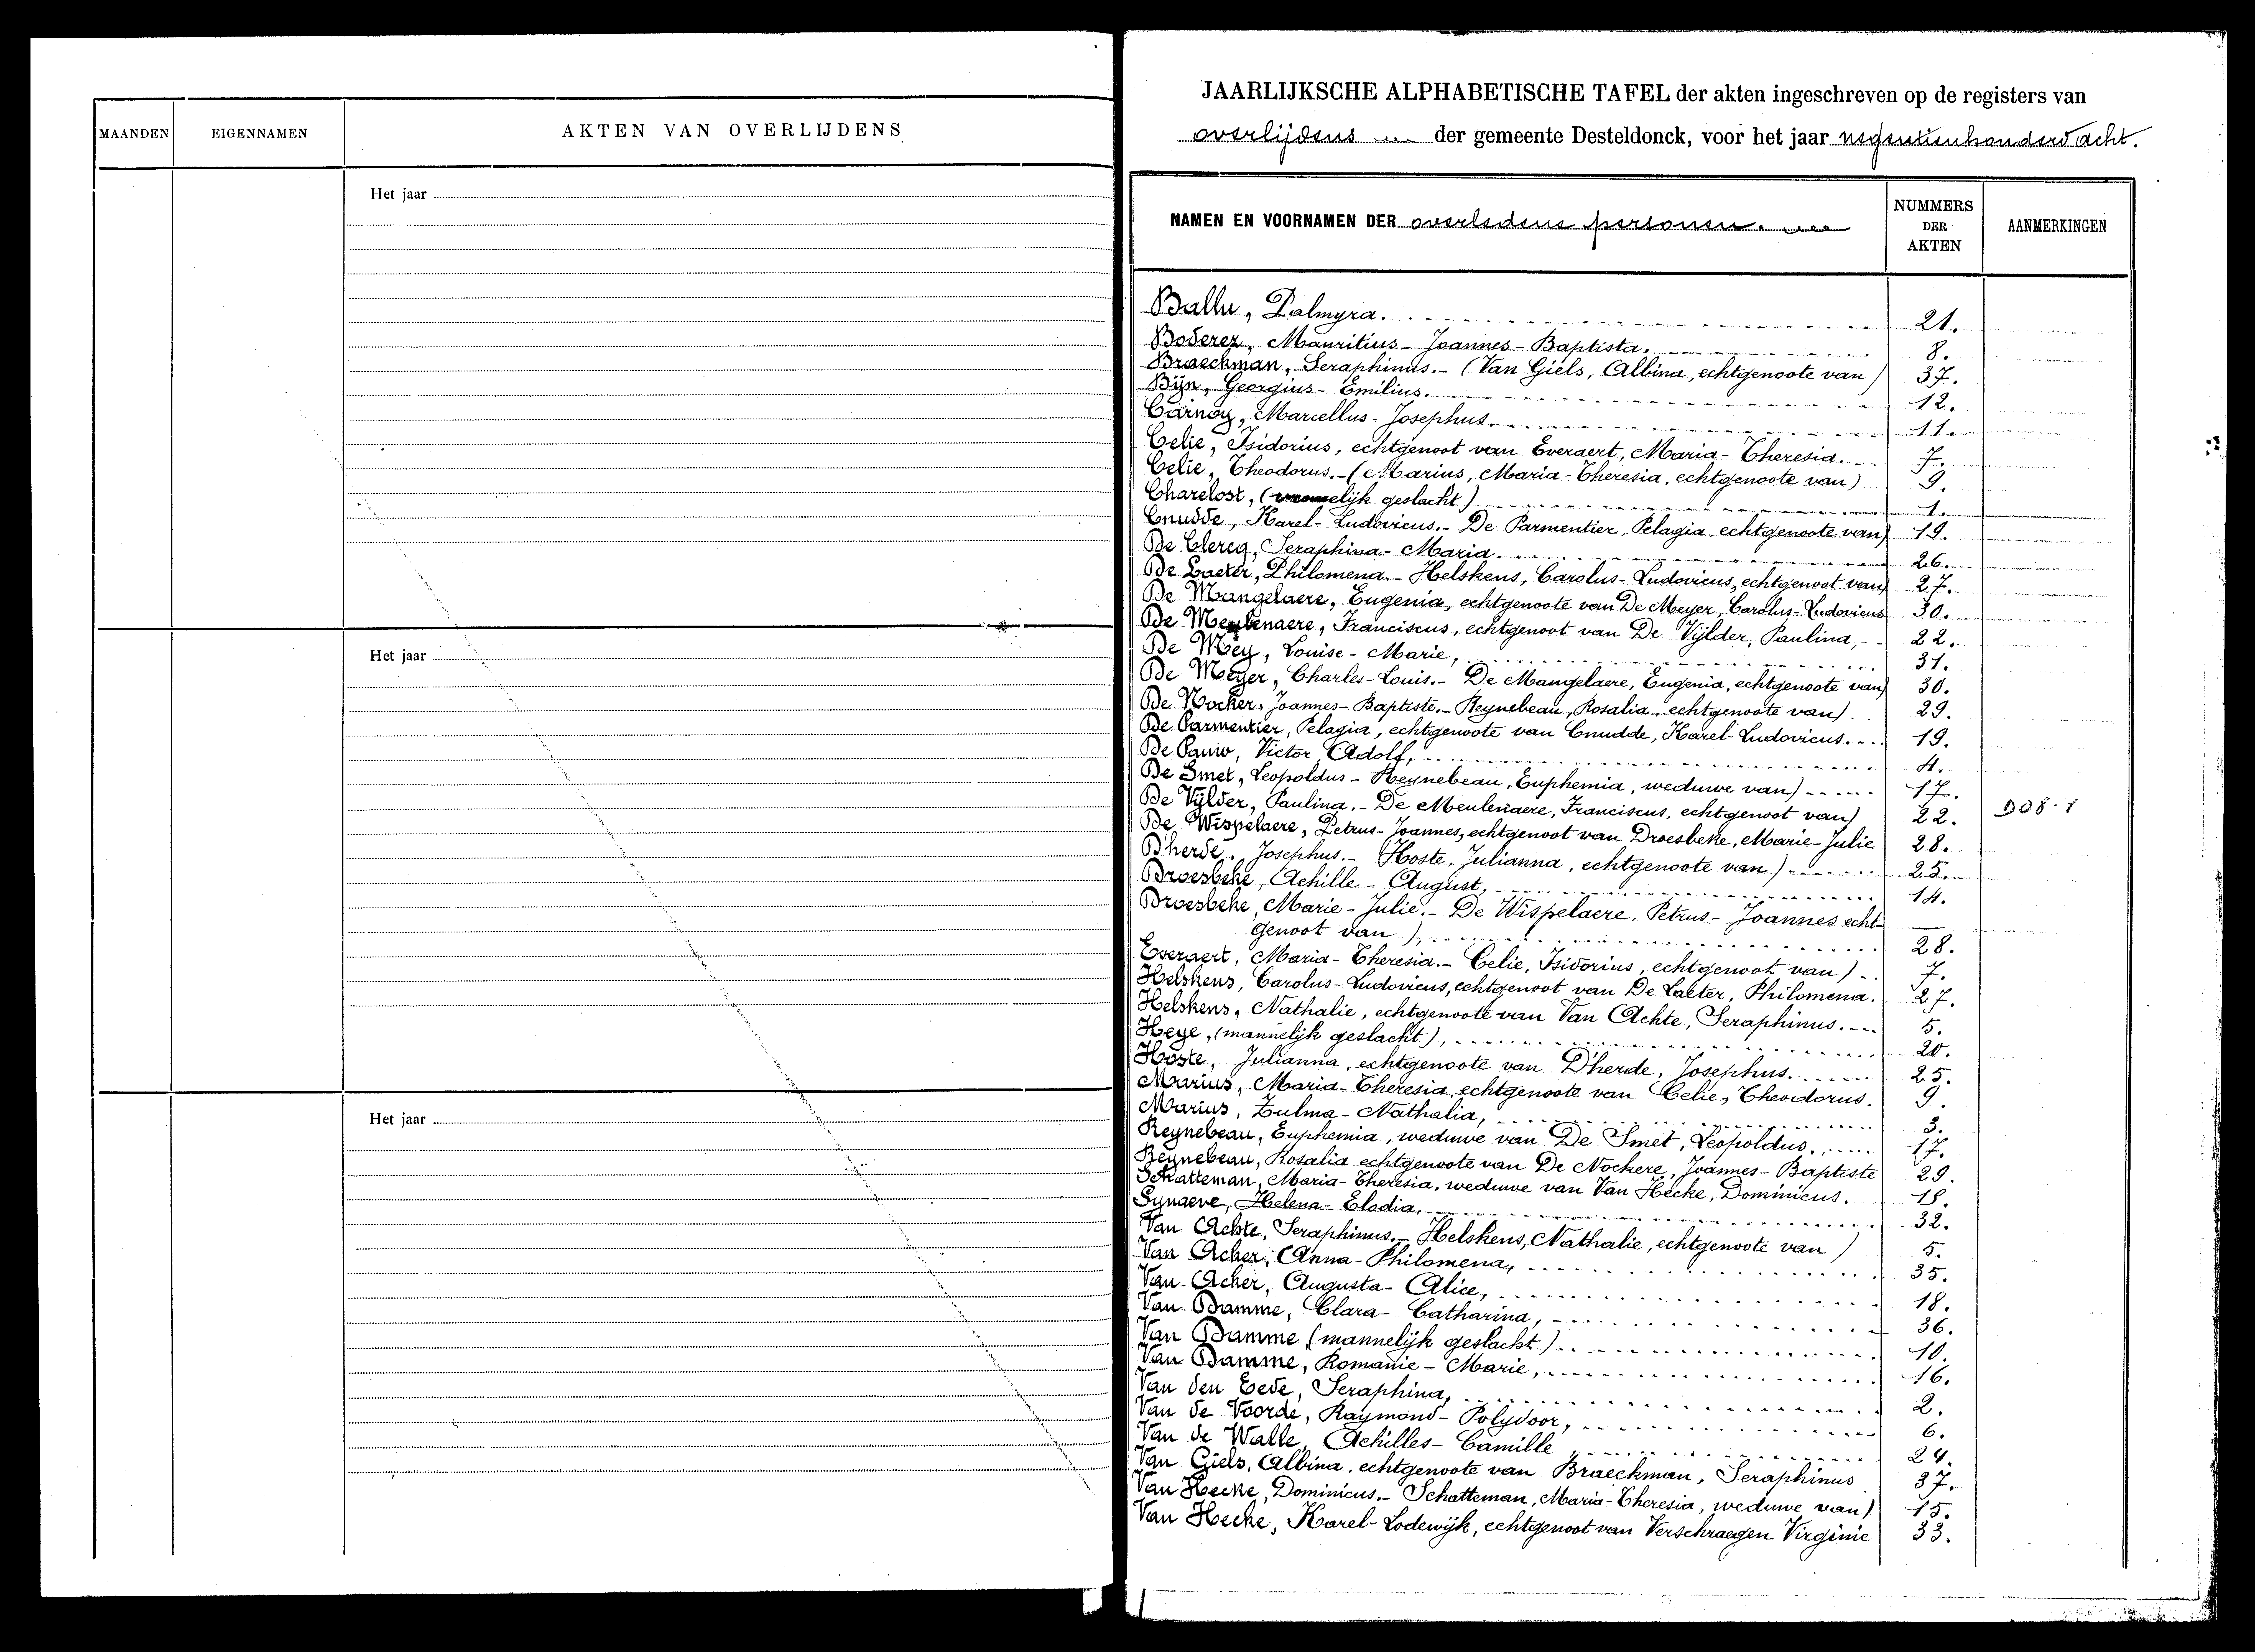 MAANDEN
EIGENNAMEN
AKTEN VAN OVERLIJDENS
Het jaar
Het jaar
Het jaar
JAARLIJKSCHE ALPHABETISCHE TAFEL der akten ingeschreven op de registers van
overlijdens der gemeente Desteldonck, voor het jaar negentienhonderd acht.
NAMEN EN VOORNAMEN DER overledene personen.
NUMMERS DER AKTEN
AANMERKINGEN
Ballu, Palmyra. 21.
Boderez, Mauritius-Joannes-Baptista. 8.
Braeckman, Seraphinus.- (Van Giels, Albina, echtgenoote van) 37.
Bijn, Georgius-Emilius. 12.
Carnoy, Marcellus-Josephus. 11.
Celie, Isidorius, echtgenoot van Everaert, Maria-Theresia. 7.
Celie, Theodorus.-(Marius, Maria-Theresia, echtgenoote van) 9.
Charelost, (elijk geslacht) 1.
Cnudde, Karel-Ludovicus.- De Parmentier, Pelagia, echtgenoote van) 19.
De Clercq, Seraphina-Maria. 26.
De Laeter, Philomena.- Helskens, Carolus-Ludovicus, echtgenoot van) 27.
De Mangelaere, Eugenia, echtgenoote van De Meyer, Carolus-Ludovicus 30.
De Meulenaere, Franciscus, echtgenoot van De Vijlder, Paulina, 22.
De Mey, Louise-Marie, 31.
De Meyer, Charles-Louis.- De Mangelaere, Eugenia, echtgenoote van) 30.
De Nocker, Joannes-Baptiste.- Reynebeau, Rosalia, echtgenoote van) 29.
De Parmentier, Pelagia, echtgenoote van Cnudde, Karel-Ludovicus. 19.
De Pauw, Victor Adolf, 4.
De Smet, Leopoldus- Reynebeau, Euphemia, weduwe van) 17.
De Vijlder, Paulina.- De Meulenaere, Franciscus, echtgenoot van) 22. D08-1
De Wispelaere, Petrus-Joannes, echtgenoot van Droesbeke, Marie-Julie 28.
D'herde, Josephus.- Hoste, Julianna, echtgenoote van) 25.
Droesbeke, Achille-August, 14.
Droesbeke, Marie-Julie.- De Wispelaere, Petrus-Joannes echt-
genoot van), 28.
Everaert, Maria-Theresia.- Celie, Isidorius, echtgenoot van) 7.
Helskens, Carolus-Ludovicus, echtgenoot van De Laeter, Philomena. 27.
Helskens, Nathalie, echtgenoote van Van Achte, Seraphinus. 5.
Heye, (mannelijk geslacht), 20.
Hoste, Julianna, echtgenoote van D'herde, Josephus. 25.
Marius, Maria-Theresia, echtgenoote van Celie, Theodorus. 9.
Marius, Zulma-Nathalia, 3.
Reynebeau, Euphemia, weduwe van De Smet, Leopoldus, 17.
Reynebeau, Rosalia echtgenoote van De Nockere, Joannes-Baptiste 29.
Schatteman, Maria-Theresia, weduwe van Van Hecke, Dominicus. 15.
Synaeve, Helena-Elodia, 32.
Van Achte, Seraphinus.- Helskens, Nathalie, echtgenoote van) 5.
Van Acker, Anna-Philomena, 35.
Van Acker, Augusta-Alice, 18.
Van Damme, Clara-Catharina, 36.
Van Damme (mannelijk geslacht) 10.
Van Damme, Romanie-Marie, 16.
Van den Eede, Seraphina, 2.
Van de Voorde, Raymond-Polydoor, 6.
Van de Walle, Achilles-Camille 24.
Van Giels, Albina, echtgenoote van Braeckman, Seraphinus 37.
Van Hecke, Dominicus.- Schatteman, Maria-Theresia, weduwe van) 15.
Van Hecke, Karel-Lodewijk, echtgenoot van Verschraegen Virginie 33.